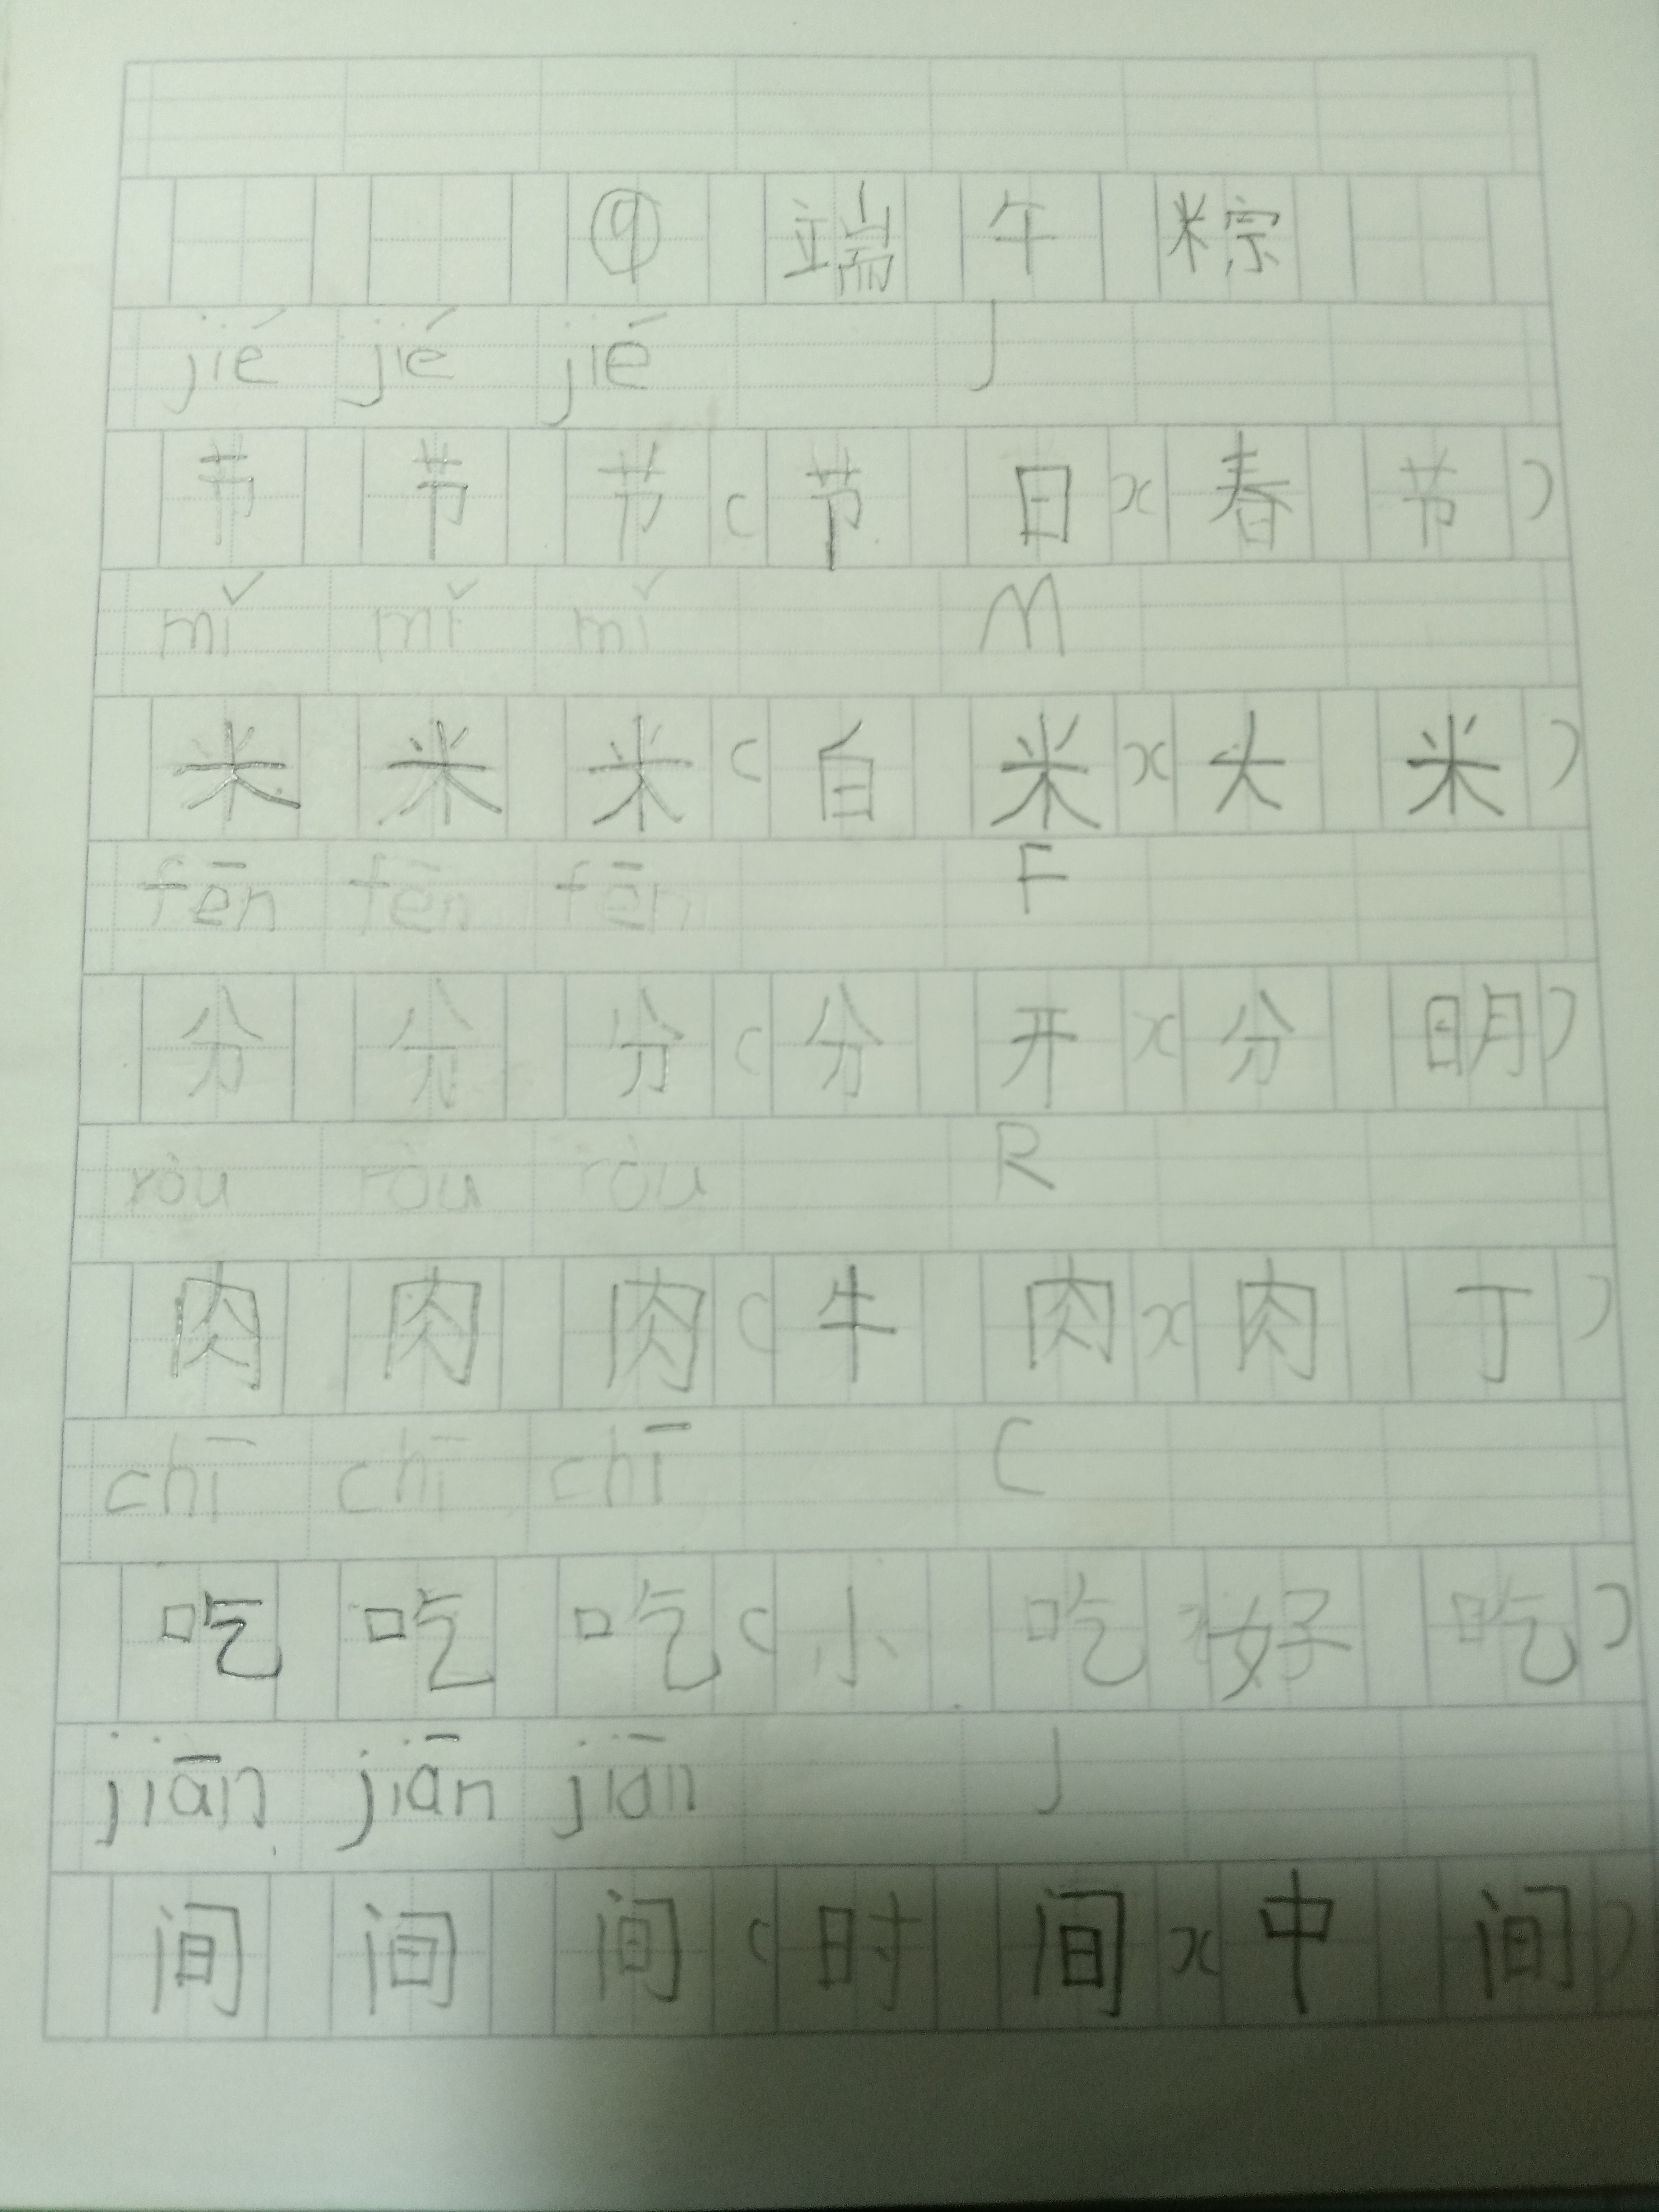 ⑨端午粽
jié jié jié J
节节节(节日)(春节)
mǐ mǐ mǐ M
米米米(白米)(大米)
fēn fēn fēn F
分分分(分开)(分明)
ròu ròu ròu R
肉肉肉(牛肉)(肉丁)
chī chī chī C
吃吃吃(小吃)(好吃)
jiān jiān jiān J
间间间(时间)(中间)